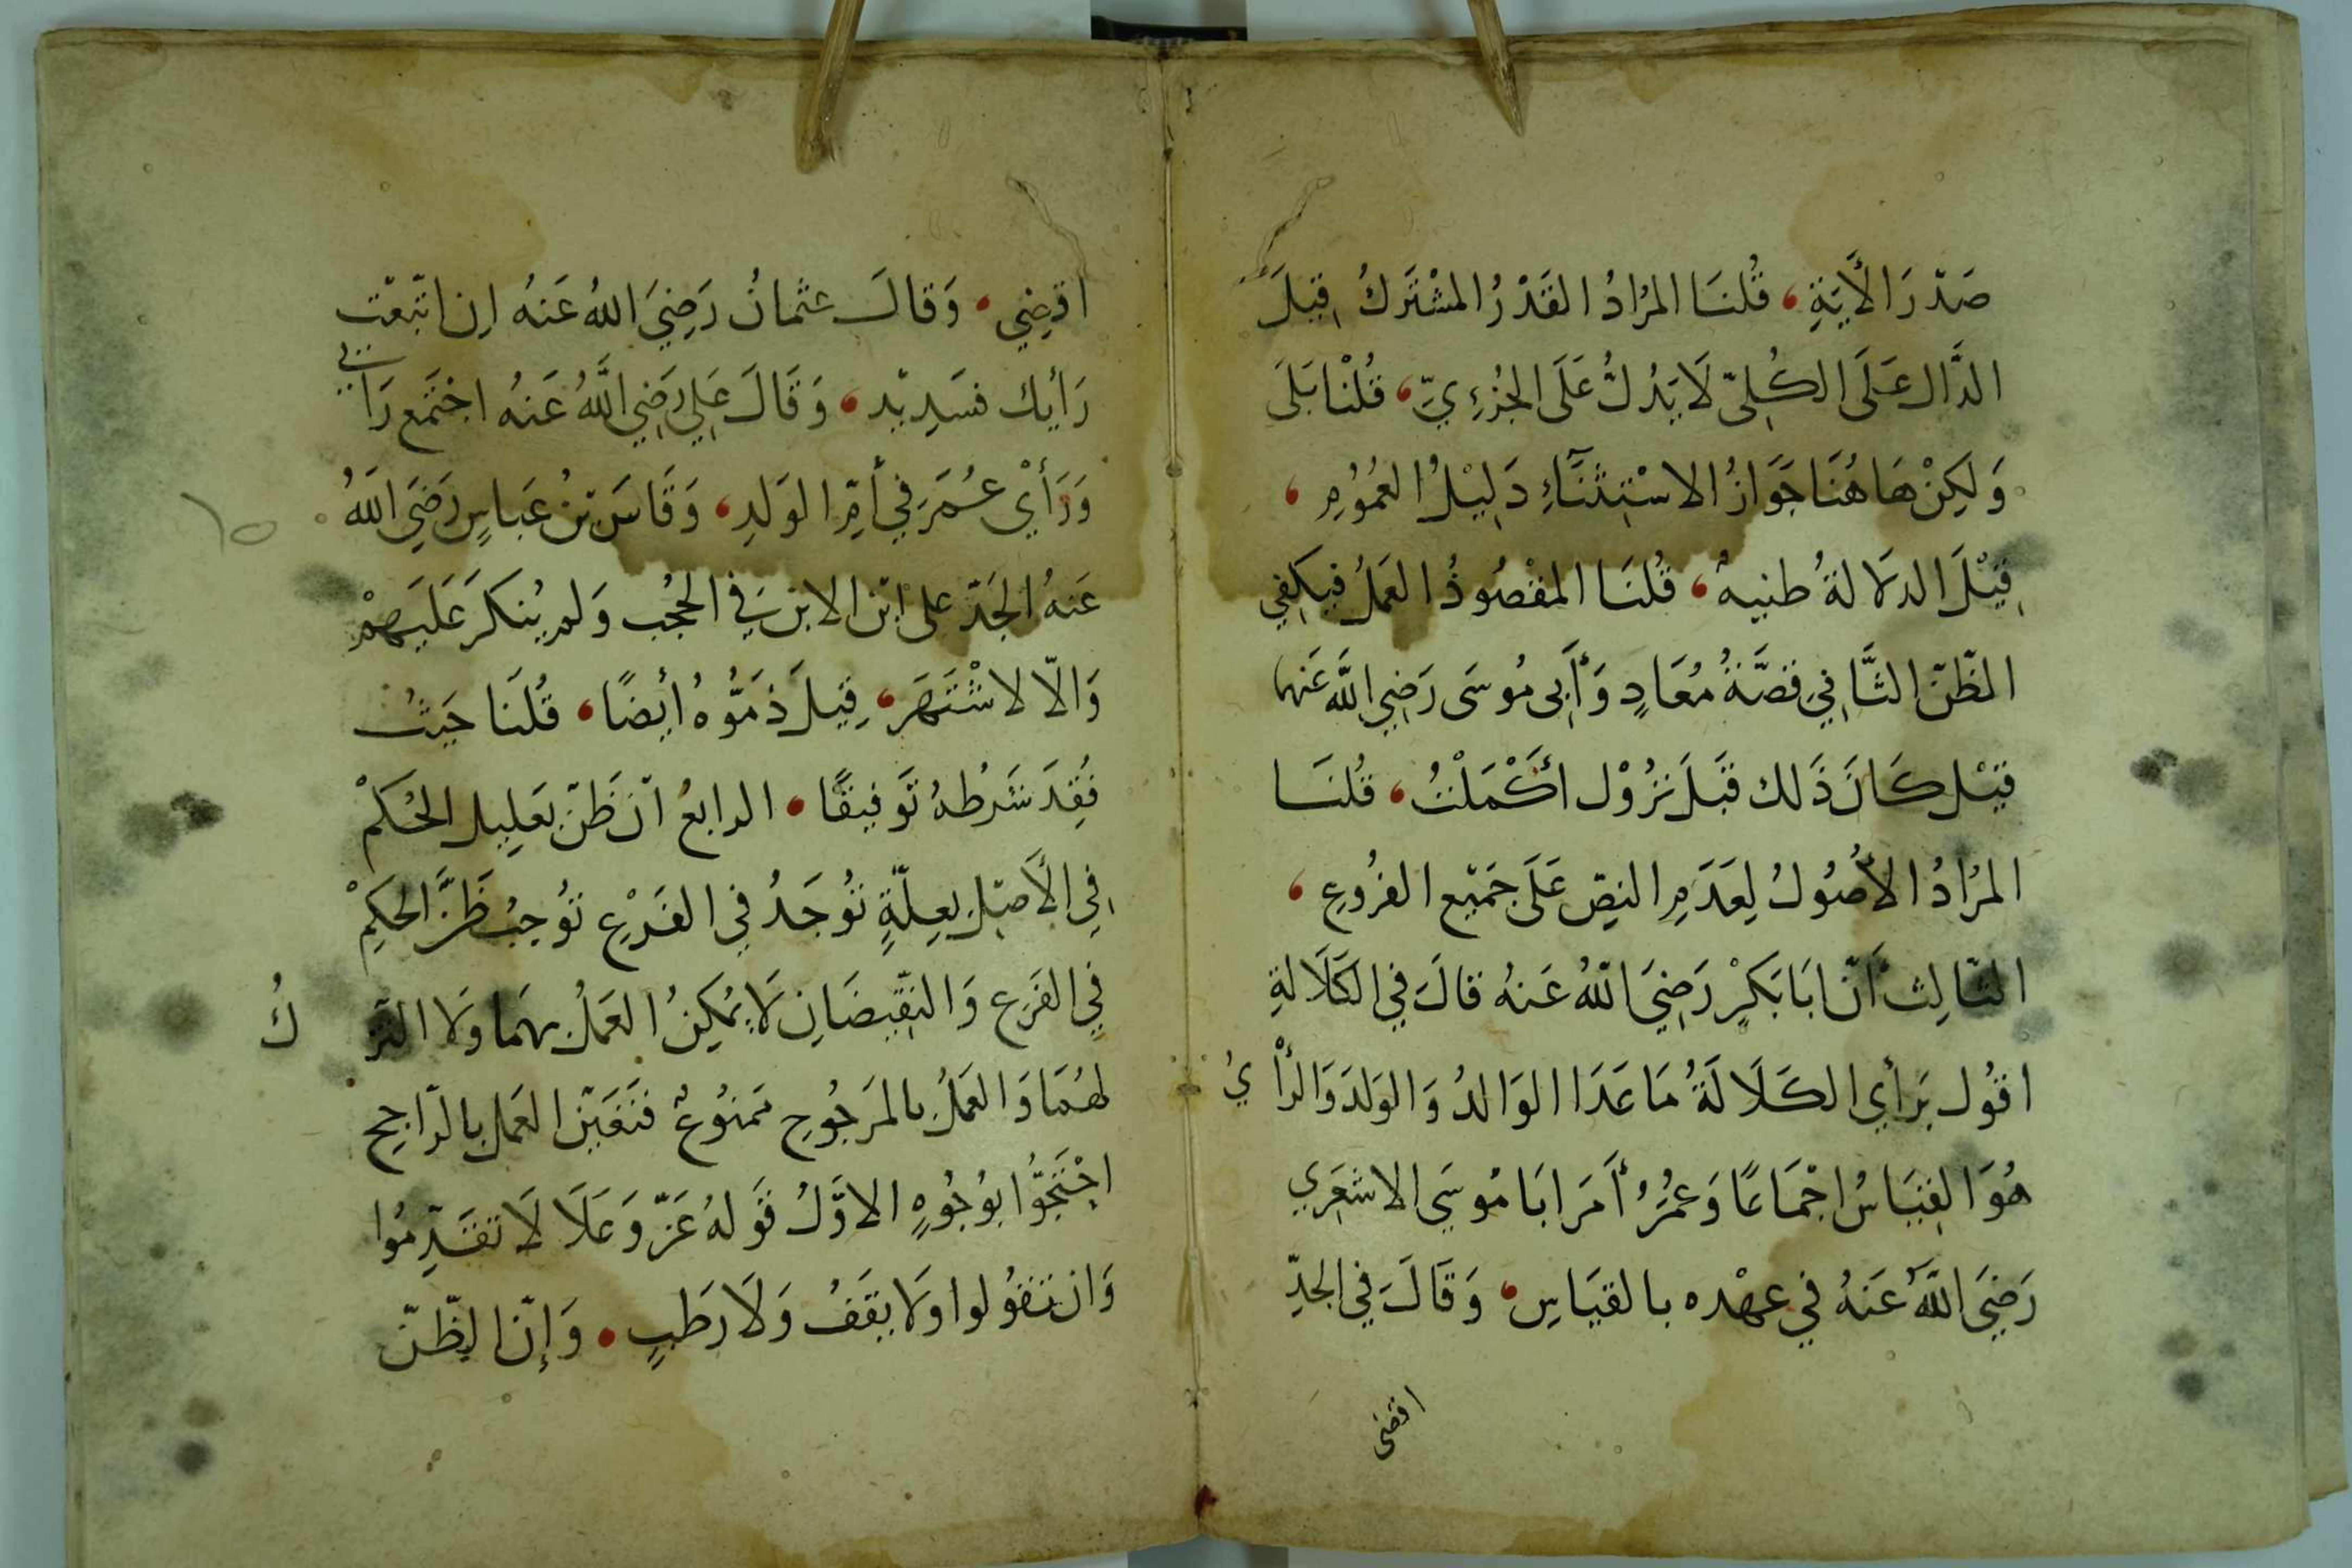 صَدّرَ الأَيَةِ، قُلنَا المرُادُ القَدْرُ المشْتَركُ قِيلَ
الدَّال عَلَى الكُلِىّ لَا يَدُلُّ عَلَى الجُزءِيِّ، قُلْنَا بَلَى
وَلكِنْ هَاهُنَا جَوَازُ الاسْتِثنَآءِ دَلِيْلُ العمُوُمِ،
قِيْلَ الدلَالةُ ظنيهُ، قُلنَا المقْصُودُ العَمَلُ فيكفِي
الظّنّ الثَّانِي قصَّةُ مُعَادٍ وَأَبِى مُوسَى رَضِي اللَّه عَنهما
قيْل كَانَ ذَلك قبَلَ نزُوْل أكَْمَلْتُ، قُلنَا
المرُادُ الأصُولُ لِعَدَمِ النصِّ عَلَى جَمَيْع الفرُوعِ،
الثاّلِث أَنّ ابَا بَكرٍْ رَضِيَ اللّهُ عَنهُ قالَ في الكَلَالةِ
اقوُل بَرأيِ الكَلَالَةُ مَا عَدَا الوَالدُ وَالوَلدَ وَالرأْيُ
هُوَ القِيَاسُ اجْمَاعًا وَعمُرُ أمَرَ ابَا مُوسَى الاشعَرِي
رَضِيَ اللَّهُ عَنهُ في عهْده بالقيَاسِ، وَقَالَ في الجدِّ
اقضى
اقضِي، وَقالَ عثمانُ رَضِيَ اللهُ عَنهُ اِن اتّبَعْت
رَأيك فسَدِيْد، وَقَالَ عَلِي رَضِي اللَّهُ عَنهُ اجْتَمَع رَايي
وَرَأْيُ عُمَرَ فِي أمِّ الوَلَدِ، وَقَاسَ بْنُ عَباسٍ رَضَيَ اللَّهُ
عَنهُ الجَدّ على ابْن الابن فِي الحُجُب وَلم يُنكَر عَلَيهِمْ
وَالاّ لاشْتَهَر، قِيلَ ذمَوُّهُ أيضًا، قُلنَا حَيثُ
فُقِدَ شَرطُهُ تَوفيقًا، الرابعُ أنّ ظَنّ تعَلِيل الحُكمْ
فِي الأَصْلِ بعِلّةٍ توُجَدُ فِي الفَرْعِ توُجبُ ظَنَّ الحكمِْ
فِي الفَرَع وَالنقِّيضَانِ لَا يُمْكِنُ العَمَلُ بِهمَا وَلَا الترّ كُ
لهُمَا وَالعَمَلُ بالمَرجُوحِ مَمنوُعُ فَتَعَيّن العَمل بِالرّاجِح
احْتَجوُّا بوُجُوهٍ الاوَّلُ قَولهُ عَزّ وَعَلَا لَا تقَدِّمُوا
وَان تقوُلوا وَلَا تقَفُ وَلَا رَطبٍ، وَإنّ الظّنّ